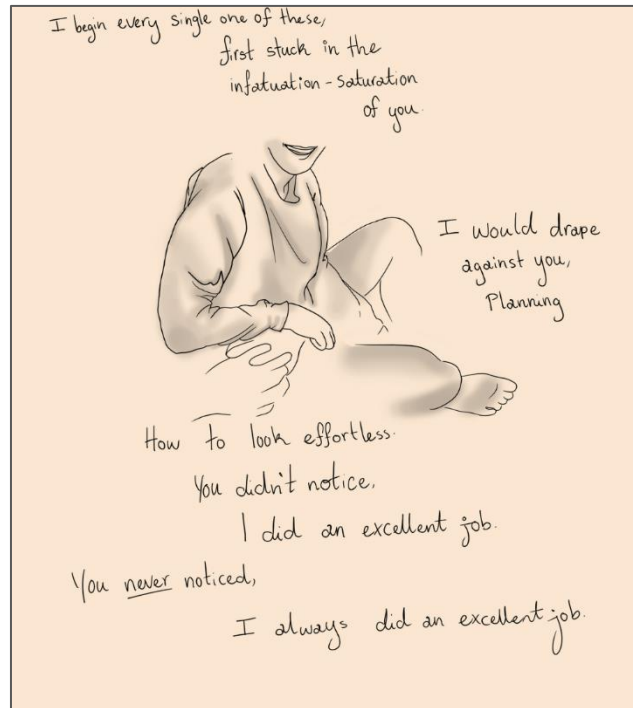 I begin every single one of these,
first stuck in the
infatuation-saturation
of you.
I would drape
against you,
Planning
How to look effortless.
You didn't notice,
I did an excellent job.
You never noticed,
I always did an excellent job.